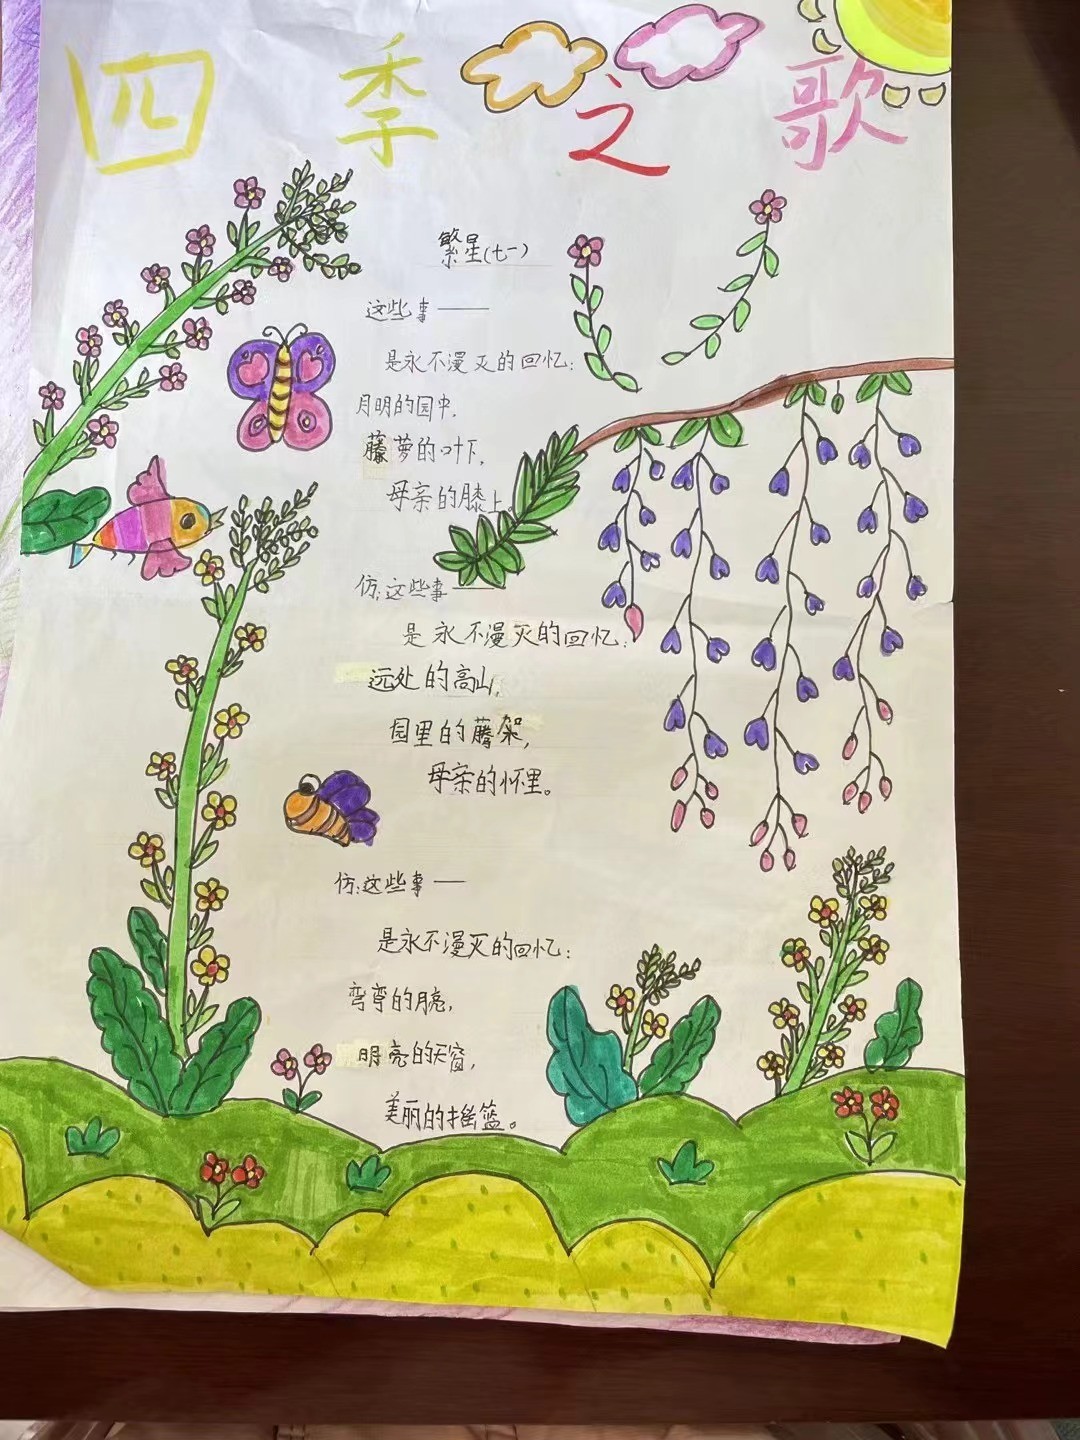 四季之歌
繁星(七一)
这些事——
是永不漫灭的回忆:
月明的园中,
藤萝的叶下,
母亲的膝上。
仿:这些事——
是永不漫灭的回忆:
远处的高山,
园里的藤架,
母亲的怀里。
仿:这些事——
是永不漫灭的回忆:
弯弯的月亮,
明亮的天窗,
美丽的摇篮。